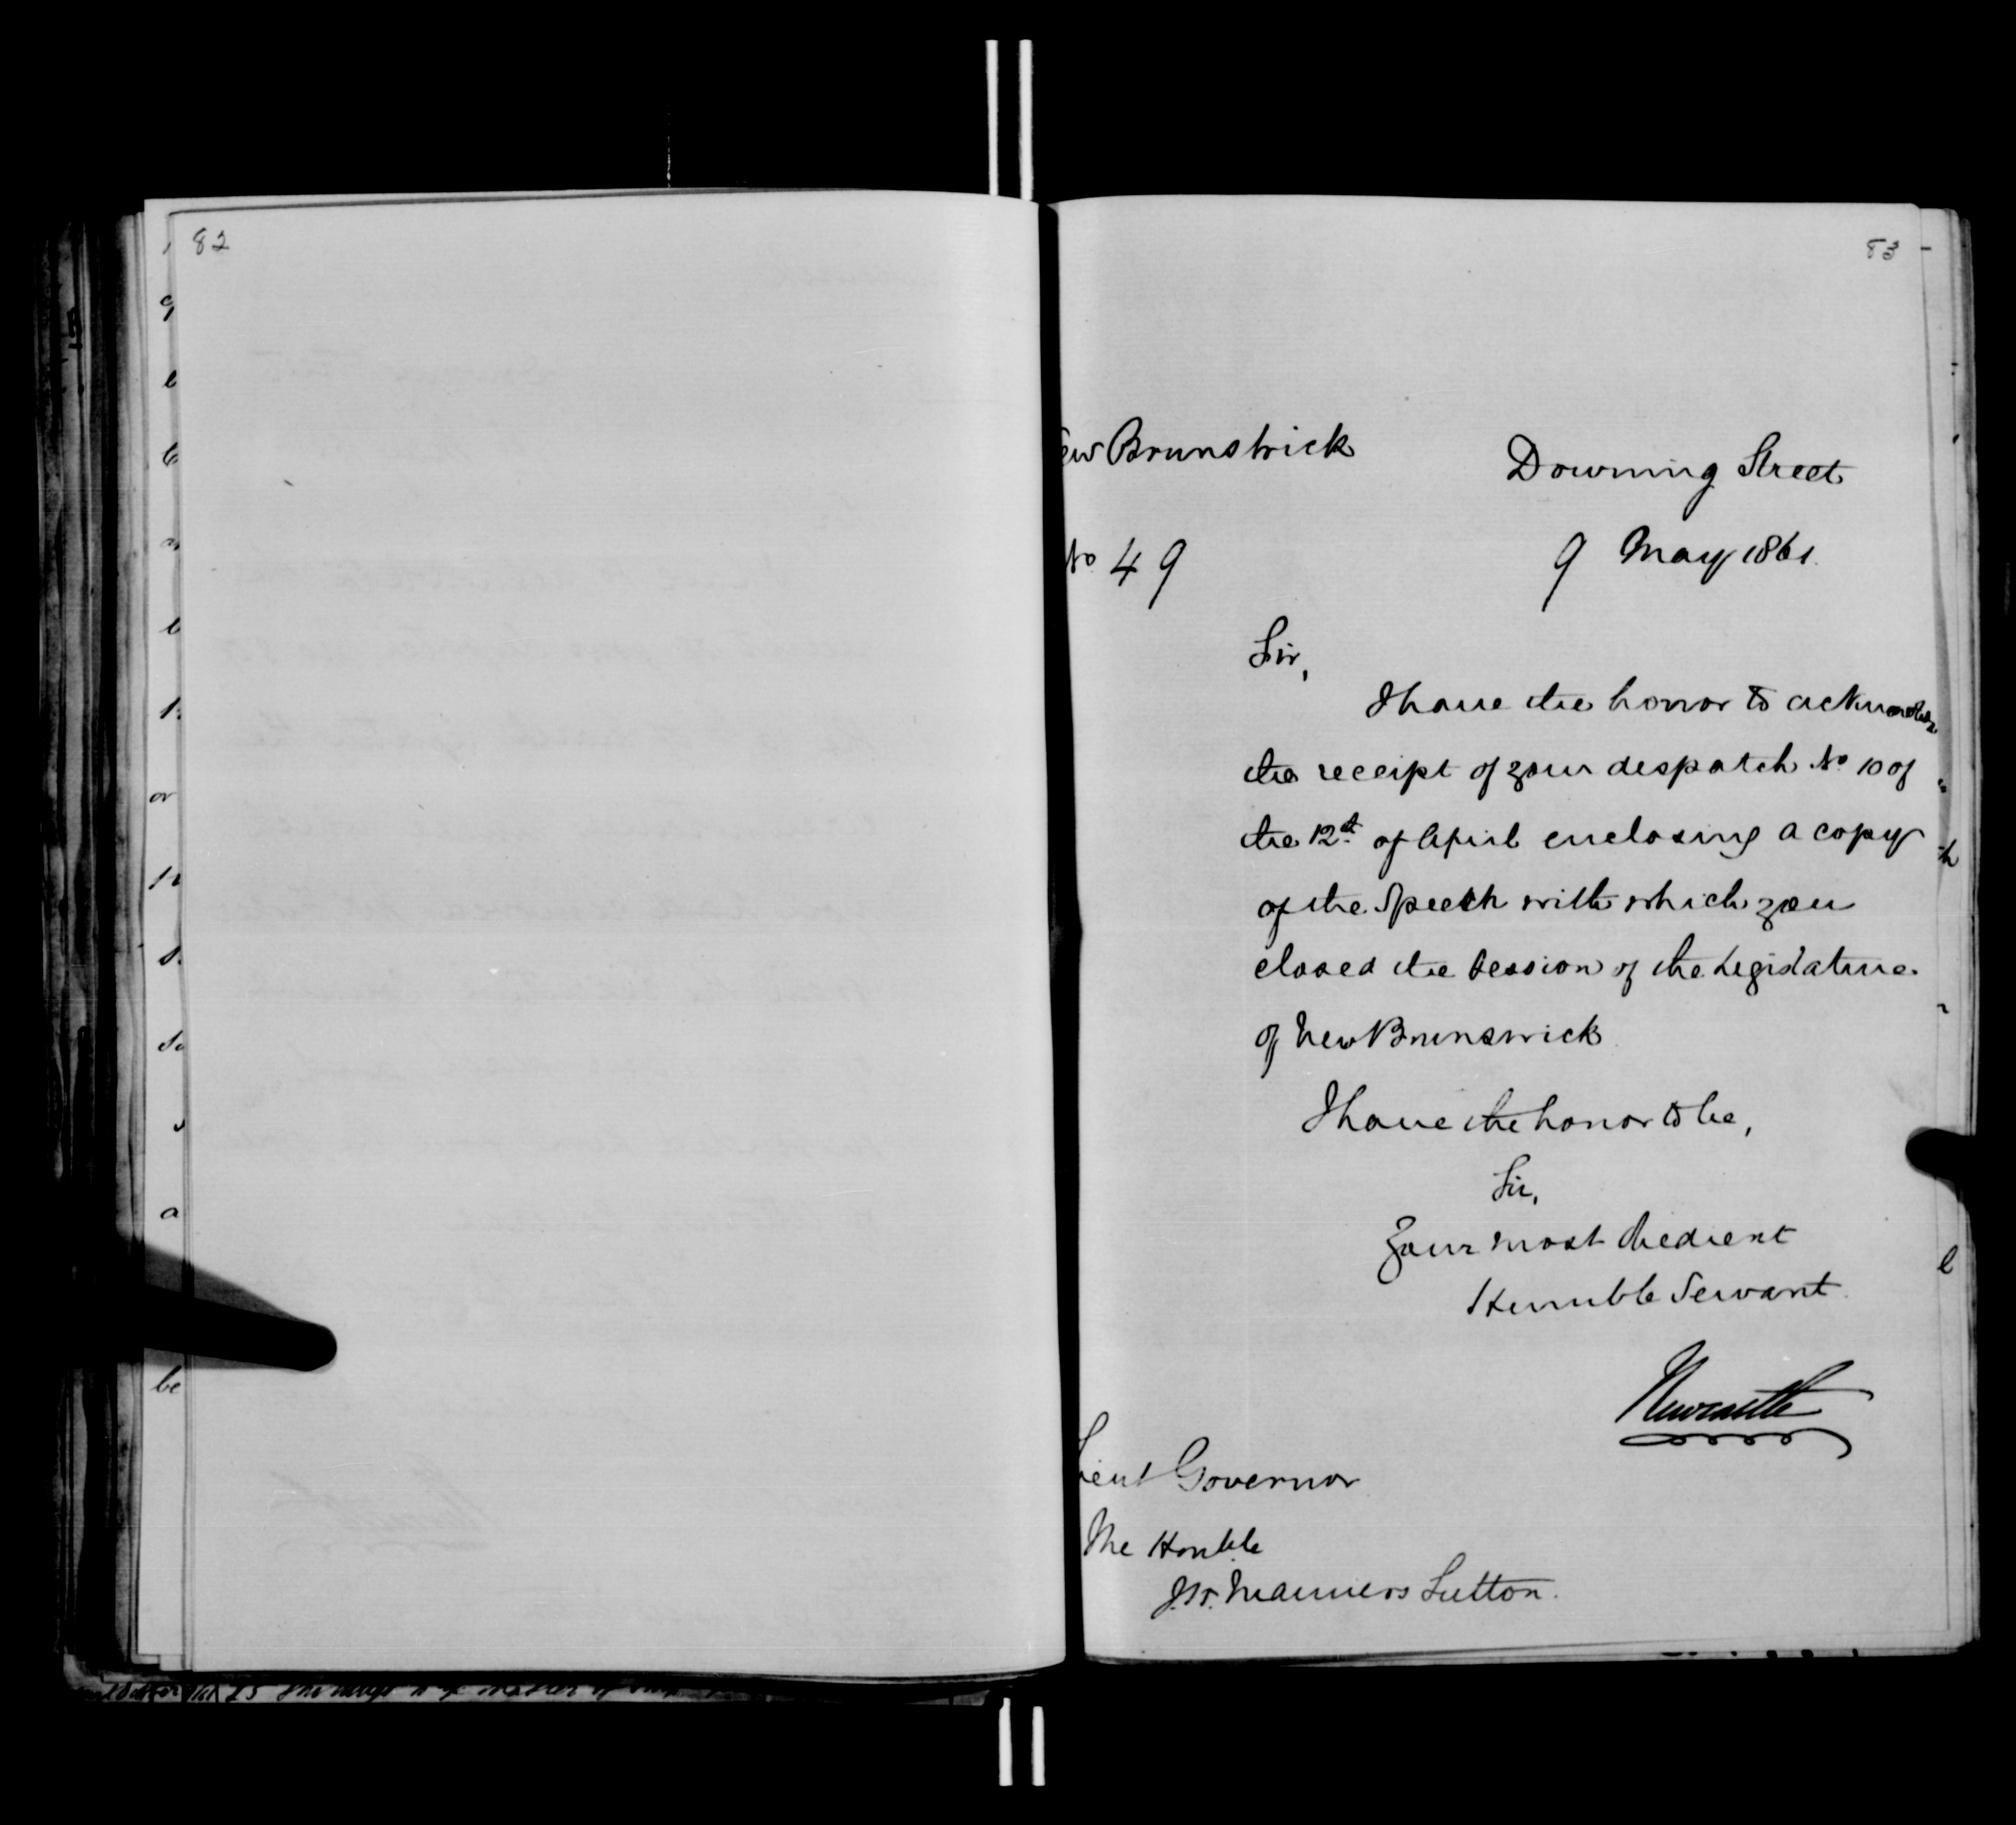 82
83
New Brunswick
Downing Street
No 49
9 May 1861.
Sir,
I have the honor to acknowledge
the receipt of your despatch No 10 of
the 12th of April enclosing a copy
of the Speech with which you
closed the Session of the Legislature
of New Brunswick
I have the honor to be,
Sir,
Your most obedient
Humble Servant.
Newcastle
Lieut Governor
The Honble
J.H. Manners Sutton.